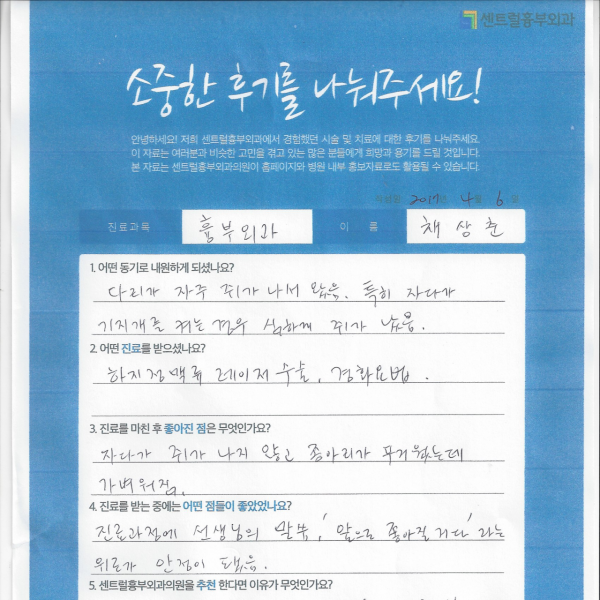 센트럴흉부외과
소중한 후기를 나눠주세요!
안녕하세요! 저희 센트럴흉부외과에서 경험했던 시술 및 치료에 대한 후기를 나눠주세요.
이 자료는 여러분과 비슷한 고민을 겪고 있는 많은 분들에게 희망과 용기를 드릴 것입니다.
본 자료는 센트럴흉부외과의원이 홈페이지와 병원 내부 홍보자료로도 활용될 수 있습니다.
2017년 4월 6일
진료과목 흉부외과 이 름 채상춘
1. 어떤 동기로 내원하게 되셨나요?
다리가 자주 쥐가 나서 왔음. 특히 자다가
기지개를 켜는 경우 심하게 쥐가 났음.
2. 어떤 진료를 받으셨나요?
하지정맥류 레이저 수술, 경화요법.
3. 진료를 마친 후 좋아진 점은 무엇인가요?
자다가 쥐가 나지 않고 종아리가 무거웠는데
가벼워짐.
4. 진료를 받는 중에는 어떤 점들이 좋았었나요?
진료과정에 선생님의 말씀, '앞으로 좋아질거다' 라는
위로가 안정이 됐음.
5. 센트럴흉부외과의원을 추천 한다면 이유가 무엇인가요?